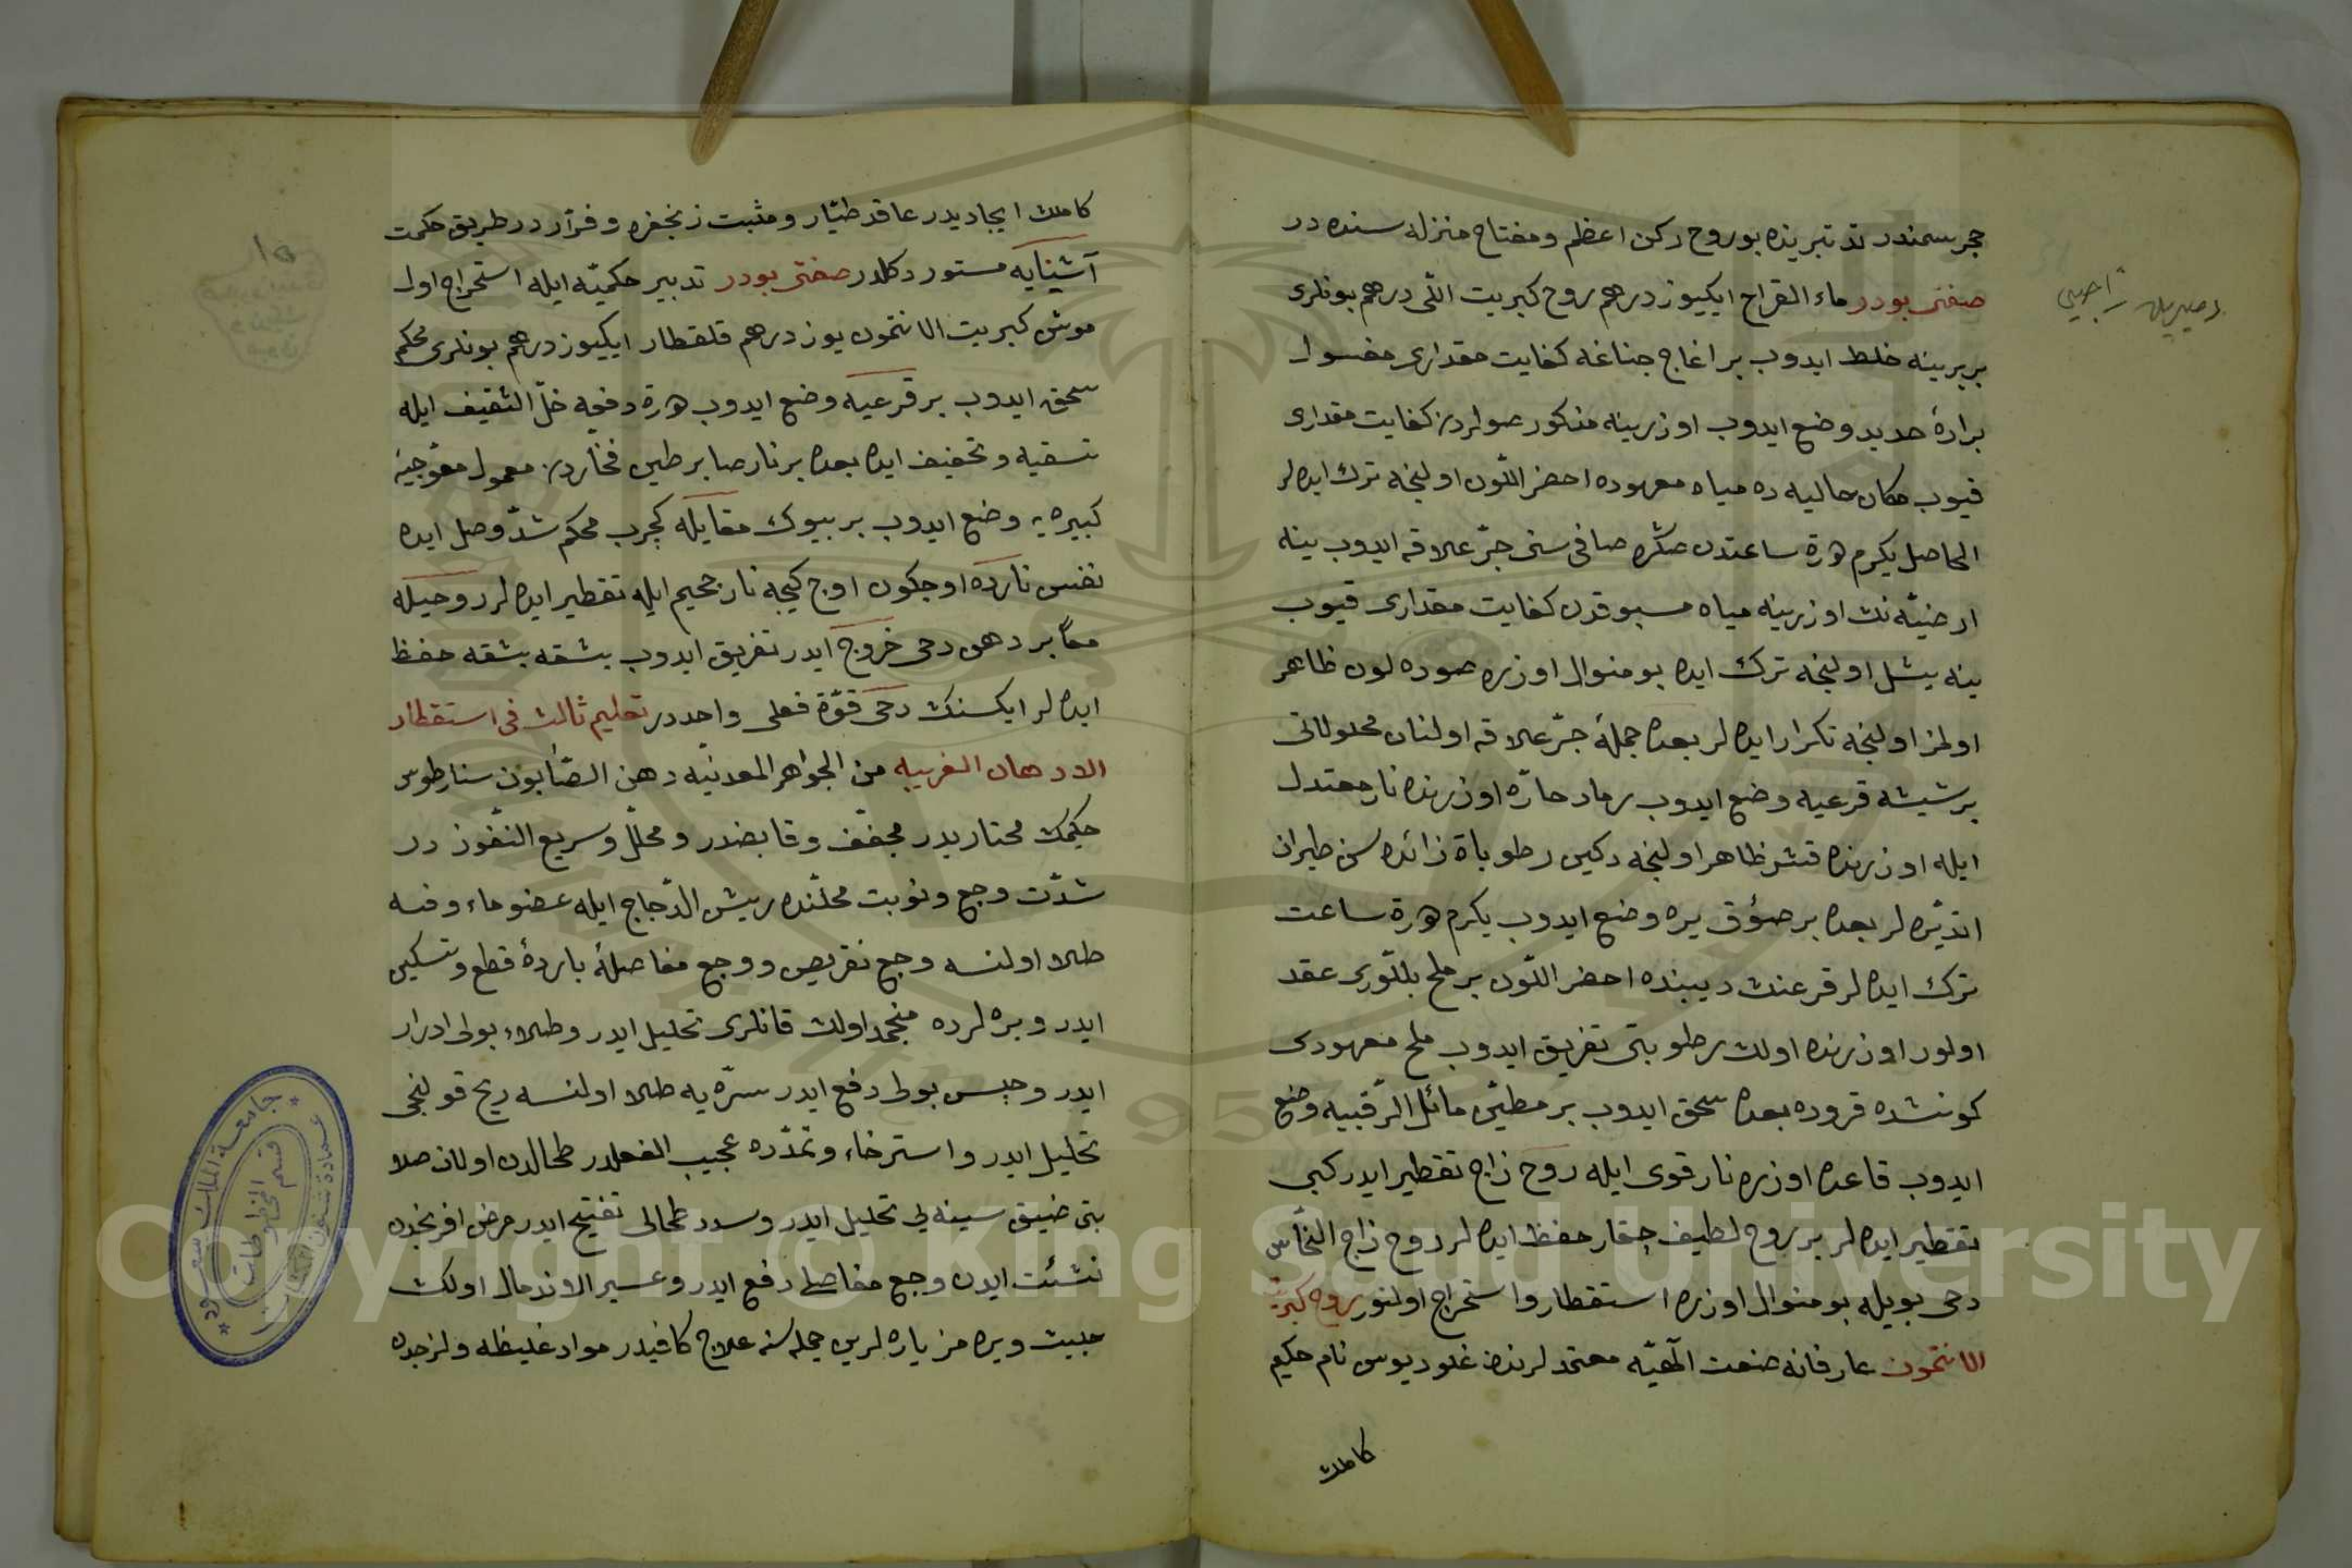 حجر سمندر تدتبرینده بوروح رکن اعظم ومفتاح منزله سنده در
صفتی بودر ماء القراح ایکیوز درهم روح کبریت اللی درهم بونلری
بربرینه خلط ایدوب بر اغاج چناغه کفایت مقداری مغسول
برادۀ حدید وضع ایدوب اوزرینه مذکور صولردن کفایت مقداری
قیوب مکان حالیه ده میاه معهوده احضر اللون اولنجه ترك ایده لر
الحاصل یکرم درة ساعتدن صکره صافی سنی جرّ علاقه ایدوب ینه
ارضیّه نك اوزرینه میاه مسبوقدن کفایت مقداری قیوب
ینه یشل اولنجه ترك ایده بو منوال اوزره صوده لون ظاهر
اولمز اولنجه تکرار ایده لر بعده جملۀ جرّ علاقه اولنان محلولاتی
بر شیشه قرعیه وضع ایدوب رماد حارّه اوزرنده نار معتدل
ایله اوزرنده قشر ظاهر اولنجه دکین رطوباة زائده سن طیران
اتدیره لر بعده بر صؤق یره وضع ایدوب یکرم درة ساعت
ترك ایده لر قرعنك دیبنده احضر اللون بر ملح بللوری عقد
اولور اوزرنده اولان رطوبتی تفریق ایدوب ملح معهودی
کونشده قروده بعده سحق ایدوب بر مطیّن مائل الرّقبیه وضع
ایدوب قاعده اوزره نار قوی ایله روح زاج تقطیر ایدر کبی
تقطیر ایده لر بر روح لطیف چقار حفظ ایده لر روح زاج النحّاس
دخی بویله بو منوال اوزره استقطار واستخراج اولنور روح کبریت
الانتمون عارفانه صنعت الٓهیّه معتمد لرندن غلودیوس نام حکیم
كاملك
كاملك ایجادیدر عاقد طیّار ومثبت زنجفره وفرّار در طریق حکمت
آشنایه مستور دکلدر صفتی بودر تدبیر حکمیّه ایله استخراج اول
موش کبریت الانتمون یوز درهم قلقطار ایکیوز درهم بونلری محکم
سحق ایدوب بر قرعیه وضع ایدوب درة دفعه خلّ الثقیف ایله
تسقیه وتجفیف ایده بعده بر نار صابر طین فخّاردن معمول معوّجیۀ
کبیره یه وضع ایدوب بر بیوك مقابله کچرب محکم شدّ وصل ایده
نفس نارده اوچکون اوچ کیجه نار جحیم ایله تقطیر ایده لر روحیله
معاً بر دهن دخی خروج ایدر تفریق ایدوب بشقه بشقه حفظ
ایده لر ایکسنك دخی قوّة فعلی واحددر تعلیم ثالث فی استقطار
الادهان الغریبه من الجواهر المعدنیّه دهن الصّابون سنارطوس
حکیمك مختاریدر مجفّف وقابضدر ومحلّل وسریع النّفوذ در
شدّت وجع ونوبت محلّنده ریش الدّجاج ایله عضو ماءوفه
طلا اولنسه وجع نقریص ووجع مفاصلۀ باردۀ قطع وتسکین
ایدر وبره لرده منجمد اولان قانلری تحلیل ایدر وطلاء بولی ادرار
ایدر وحبس بولی دفع ایدر سرّه یه طلا اولنسه ریح قولنجی
تحلیل ایدر واسترخاء وتمدّده عجیب الفعلدر طحالدن اولان صلا
بتی ضیق سینه یی تحلیل ایدر وسدد طحالی تفتیح ایدر مرض افرنجدن
نشئت ایدن وجع مفاصلی دفع ایدر وعسیر الاندمال اولان
خبیث ویره مز یاره لرین جمله سنه علاج کافیدر مواد غلیظه ولزجده
جامعة الملك سعود
عمادة شئون المكتبات
قسم المخطوطات
١٥